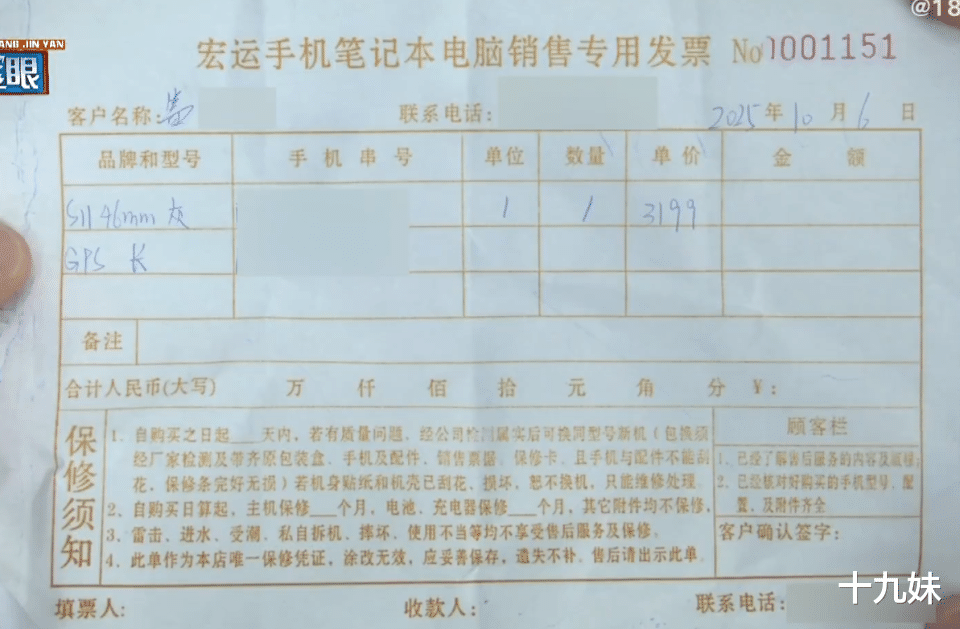 @18
ANG JIN YAN
眼
宏运手机笔记本电脑销售专用发票 No 0001151
客户名称: 联系电话: 2025年10月6日
品牌和型号 手机串号 单位 数量 单价 金额
S11 46mm 灰 1 1 3199
GPS 长
备注
合计人民币(大写) 万 仟 佰 拾 元 角 分 ¥:
保修须知
1、自购买之日起___天内，若有质量问题、经公司检测属实后可换同型号新机（包换须
经厂家检测及带齐原包装盒、手机及配件、销售票据、保修卡、且手机与配件不能刮
花、保修条完好无损）若机身贴纸和机壳已刮花、损坏、恕不换机，只能维修处理。
2、自购买日算起，主机保修___个月，电池、充电器保修___个月，其它附件均不保修，
3、雷击、进水、受潮、私自拆机、摔坏、使用不当等均不享受售后服务及保修。
4、此单作为本店唯一保修凭证，涂改无效，应妥善保存，遗失不补。售后请出示此单。
顾客栏
1、已经了解售后服务的内容及流程
2、已经核对好购买的手机型号、配
置、及附件齐全
客户确认签字:
填票人: 收款人: 联系电话:
十九妹